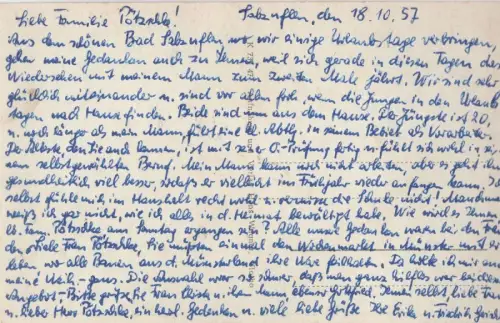 Liebe Familie Pötzschke! Salzuflen, den 18.10.57
Aus dem schönen Bad Salzuflen wo wir einige Urlaubstage verbringen,
gehen meine Gedanken auch zu Ihnen, weil sich gerade in diesen Tagen das
Wiedersehen mit meinem Mann zum zweiten Male jährt. Wir sind sehr
glücklich miteinander u. sind vor allem froh, wenn die Jungen in den Urlaubs
tagen nach Hause finden. Beide sind nun aus dem Hause. Der Jüngste ist 20,
u. noch länger als mein Mann, führt eine kl. Abtlg. in seinem Betrieb als Vorarbeiter.
Der Älteste, den Sie auch kennen, ist mit seiner Prüfung fertig u. fühlt sich wohl in sei-
nem selbstgewählten Beruf. Mein Mann kann noch nicht arbeiten, aber es geht ihm
gesundheitlich viel besser, sodaß er vielleicht im Frühjahr wieder anfangen kann.
selbst fühle mich im Haushalt recht wohl u. vermisse die Schule nicht! Manchmal
weiß ich gar nicht, wie ich alles in d. Heimat bewältigt habe. Wie wird es Ihnen
lb. Fam. Pötzschke am Samstag ergangen sein? Alle unsere Gedanken waren bei
Liebe Frau Pötzschke, Sie müßten einmal den Wochenmarkt in Münster mit er-
leben, wo alle Bauern aus d. Münsterland ihre Ware feilhalten. Da holte ich mir auch
meine Gans. Die Auswahl war so schwer, daß man ganz hilflos war bei dem
Angebot. Bitte grüße Frau
u. liebe Herr Pötzschke, ein herzl. Gedenken u. viele liebe Grüße Ihre Erika u. Friedrich